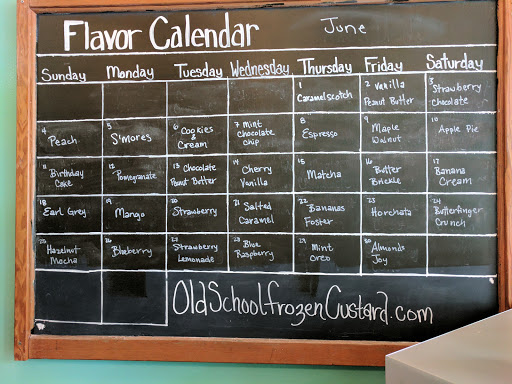 Flavor Calendar June
Sunday Monday Tuesday Wednesday Thursday Friday Saturday
1 Caramelscotch
2 Vanilla Peanut Butter
3 Strawberry Chocolate
4 Peach
5 S'mores
6 Cookies & Cream
7 Mint Chocolate Chip
8 Espresso
9 Maple Walnut
10 Apple Pie
11 Birthday Cake
12 Pomegranate
13 Chocolate Peanut Butter
14 Cherry Vanilla
15 Matcha
16 Butter Brickle
17 Banana Cream
18 Earl Grey
19 Mango
20 Strawberry
21 Salted Caramel
22 Bananas Foster
23 Horchata
24 Butterfinger Crunch
25 Hazelnut Mocha
26 Blueberry
27 Strawberry Lemonade
28 Blue Raspberry
29 Mint Oreo
30 Almonds Joy
OldSchoolfrozenCustard.com